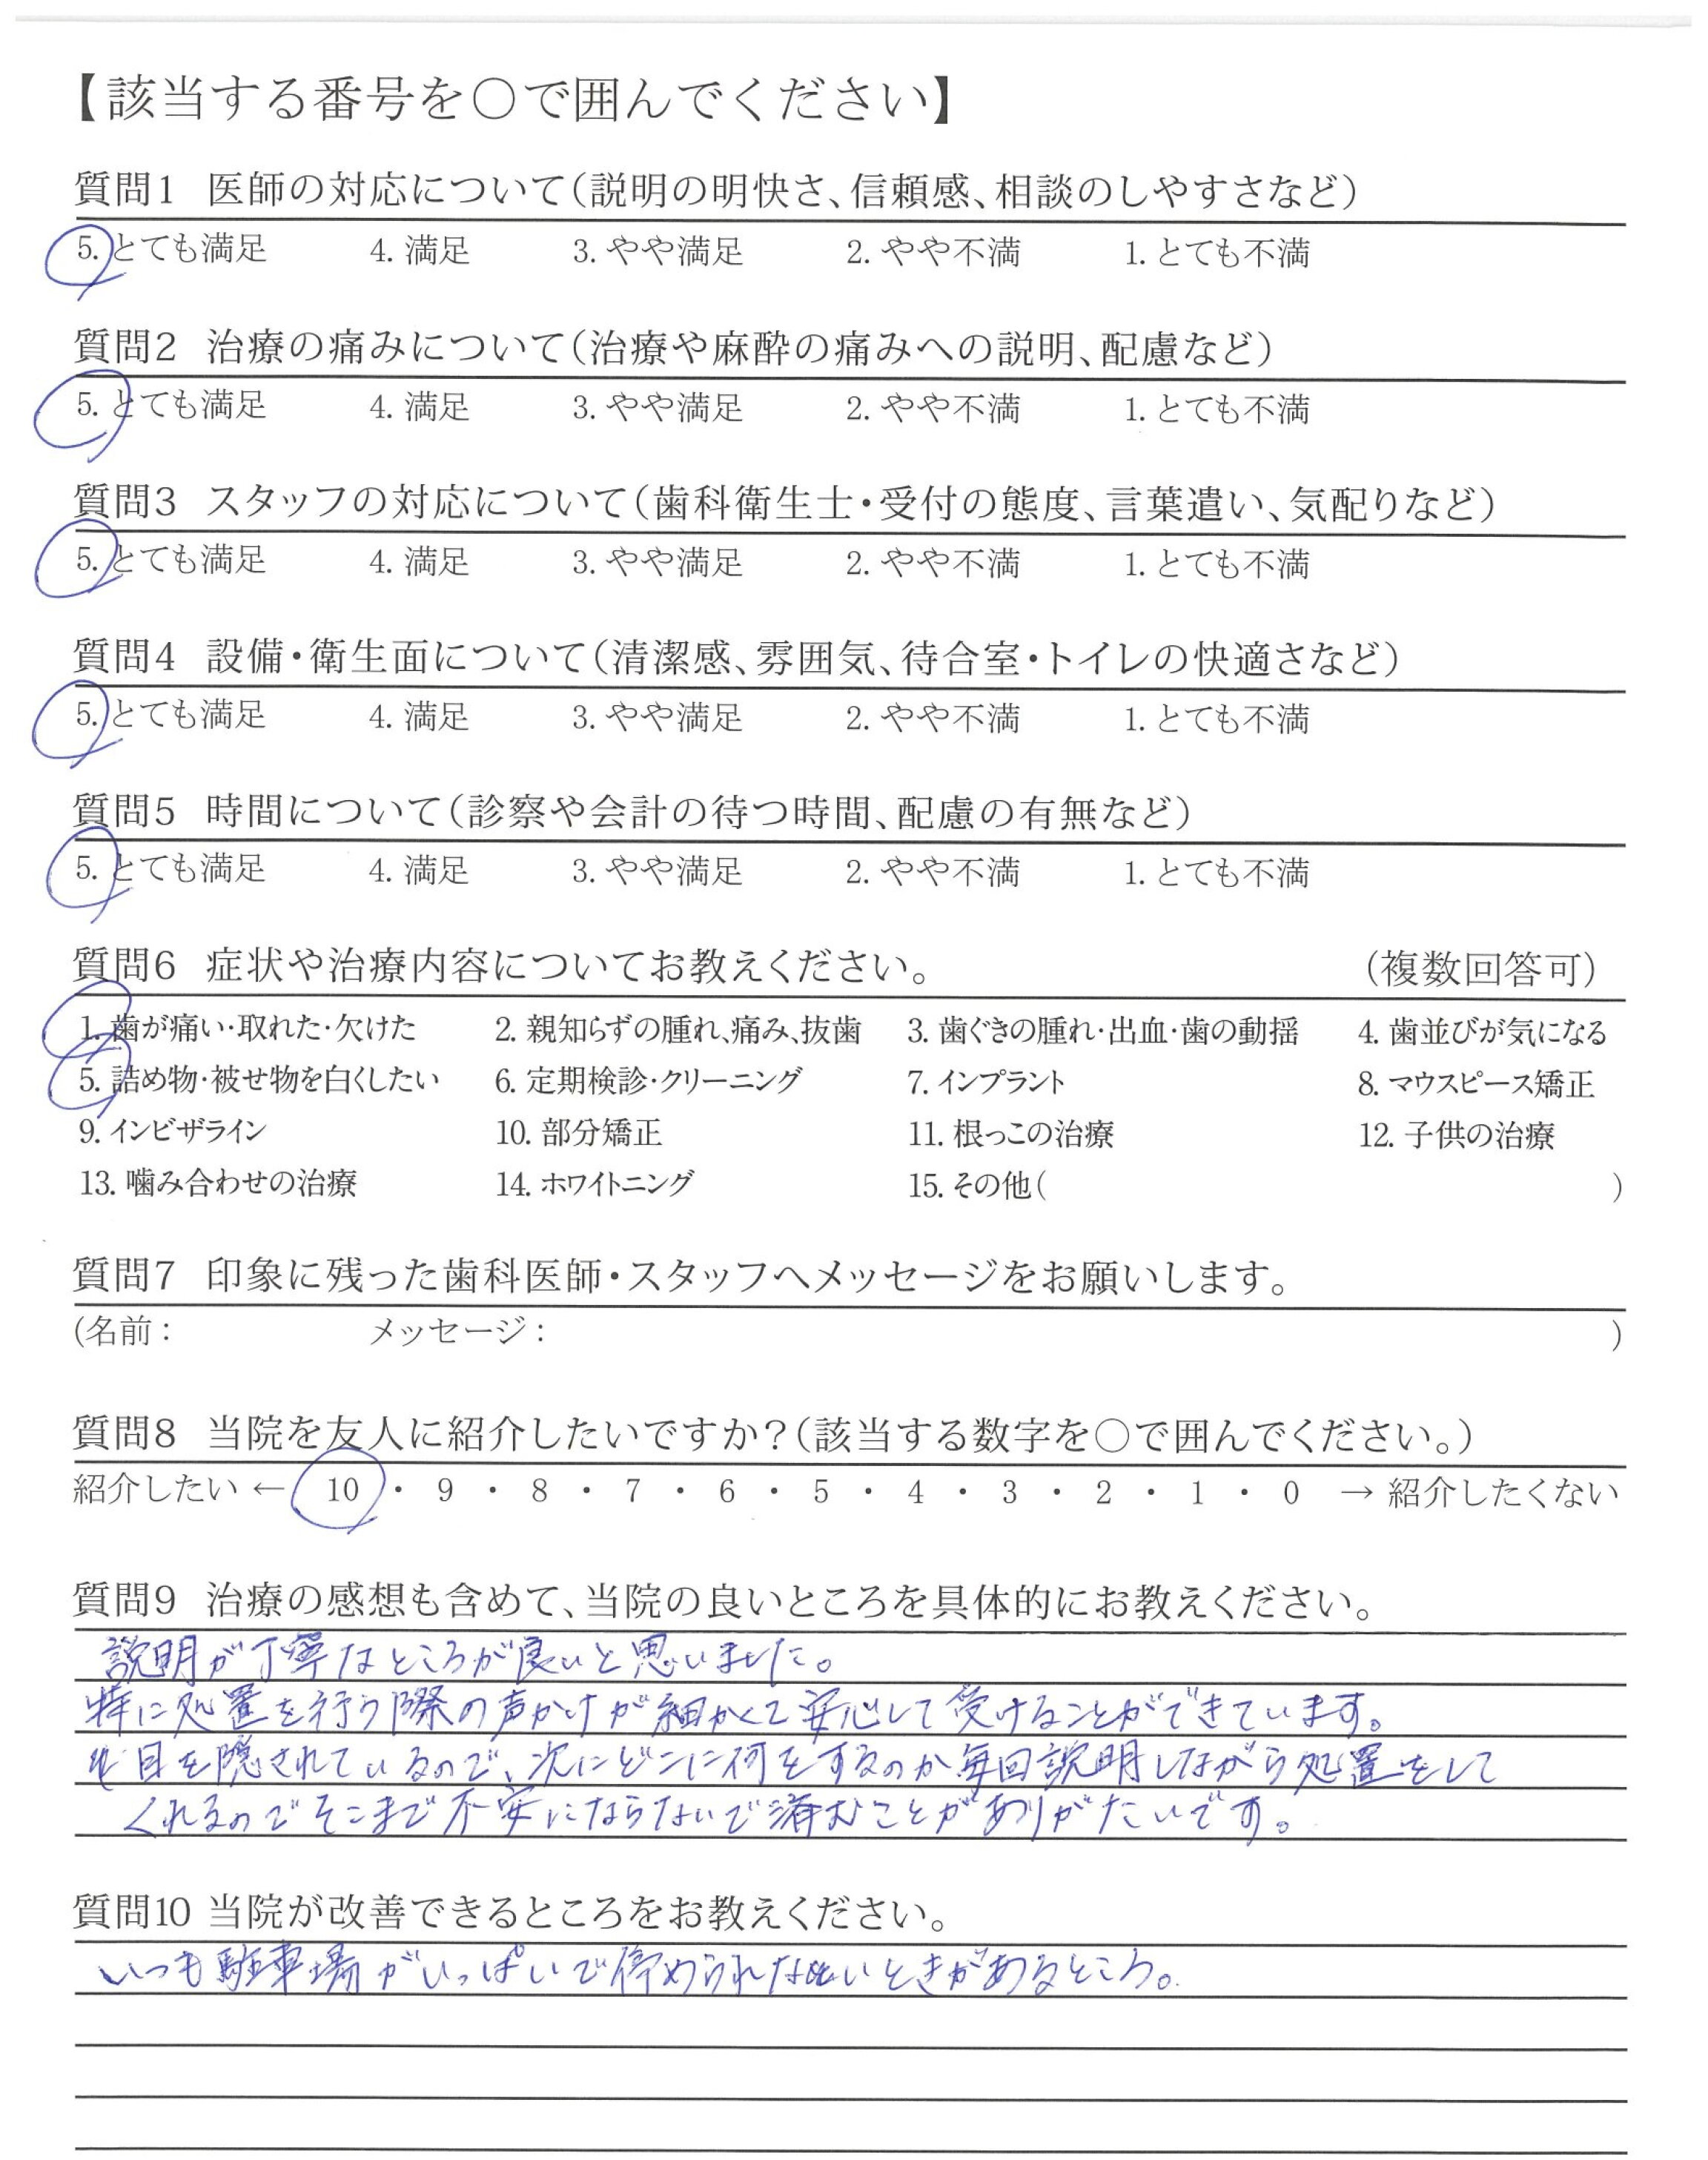 【該当する番号を○で囲んでください】
質問1 医師の対応について(説明の明快さ、信頼感、相談のしやすさなど)
5. とても満足 4. 満足 3. やや満足 2. やや不満 1. とても不満
質問2 治療の痛みについて(治療や麻酔の痛みへの説明、配慮など)
5. とても満足 4. 満足 3. やや満足 2. やや不満 1. とても不満
質問3 スタッフの対応について(歯科衛生士・受付の態度、言葉遣い、気配りなど)
5. とても満足 4. 満足 3. やや満足 2. やや不満 1. とても不満
質問4 設備・衛生面について(清潔感、雰囲気、待合室・トイレの快適さなど)
5. とても満足 4. 満足 3. やや満足 2. やや不満 1. とても不満
質問5 時間について(診察や会計の待つ時間、配慮の有無など)
5. とても満足 4. 満足 3. やや満足 2. やや不満 1. とても不満
質問6 症状や治療内容についてお教えください。 (複数回答可)
1. 歯が痛い・取れた・欠けた 2. 親知らずの腫れ、痛み、抜歯 3. 歯ぐきの腫れ・出血・歯の動揺 4. 歯並びが気になる
5. 詰め物・被せ物を白くしたい 6. 定期検診・クリーニング 7. インプラント 8. マウスピース矯正
9. インビザライン 10. 部分矯正 11. 根っこの治療 12. 子供の治療
13. 噛み合わせの治療 14. ホワイトニング 15. その他( )
質問7 印象に残った歯科医師・スタッフへメッセージをお願いします。
(名前: メッセージ: )
質問8 当院を友人に紹介したいですか?(該当する数字を○で囲んでください。)
紹介したい ← 10 ・ 9 ・ 8 ・ 7 ・ 6 ・ 5 ・ 4 ・ 3 ・ 2 ・ 1 ・ 0 → 紹介したくない
質問9 治療の感想も含めて、当院の良いところを具体的にお教えください。
説明が丁寧なところが良いと思いました。
特に処置を行う際の声かけが細かくて安心して受けることができています。
目を隠されているので、次にどこに何をするのか毎回説明しながら処置をして
くれるのでそこまで不安にならないで済むことがありがたいです。
質問10 当院が改善できるところをお教えください。
いつも駐車場がいっぱいで停められないときがあるところ。